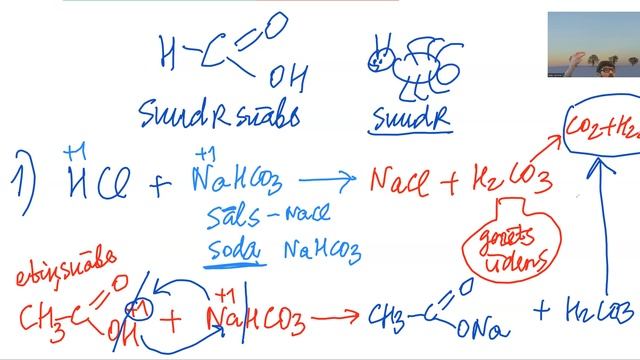 H-C O
OH H
Skudrskābe SkudR
1) +1 HCl + +1 NaHCO3 → NaCl + H2CO3 CO2+H2
sāls - NaCl
soda NaHCO3
gāzēts
ūdens
etiķskābe
CH3-C O OH +1 + +1 NaHCO3 → CH3-C O ONa + H2CO3